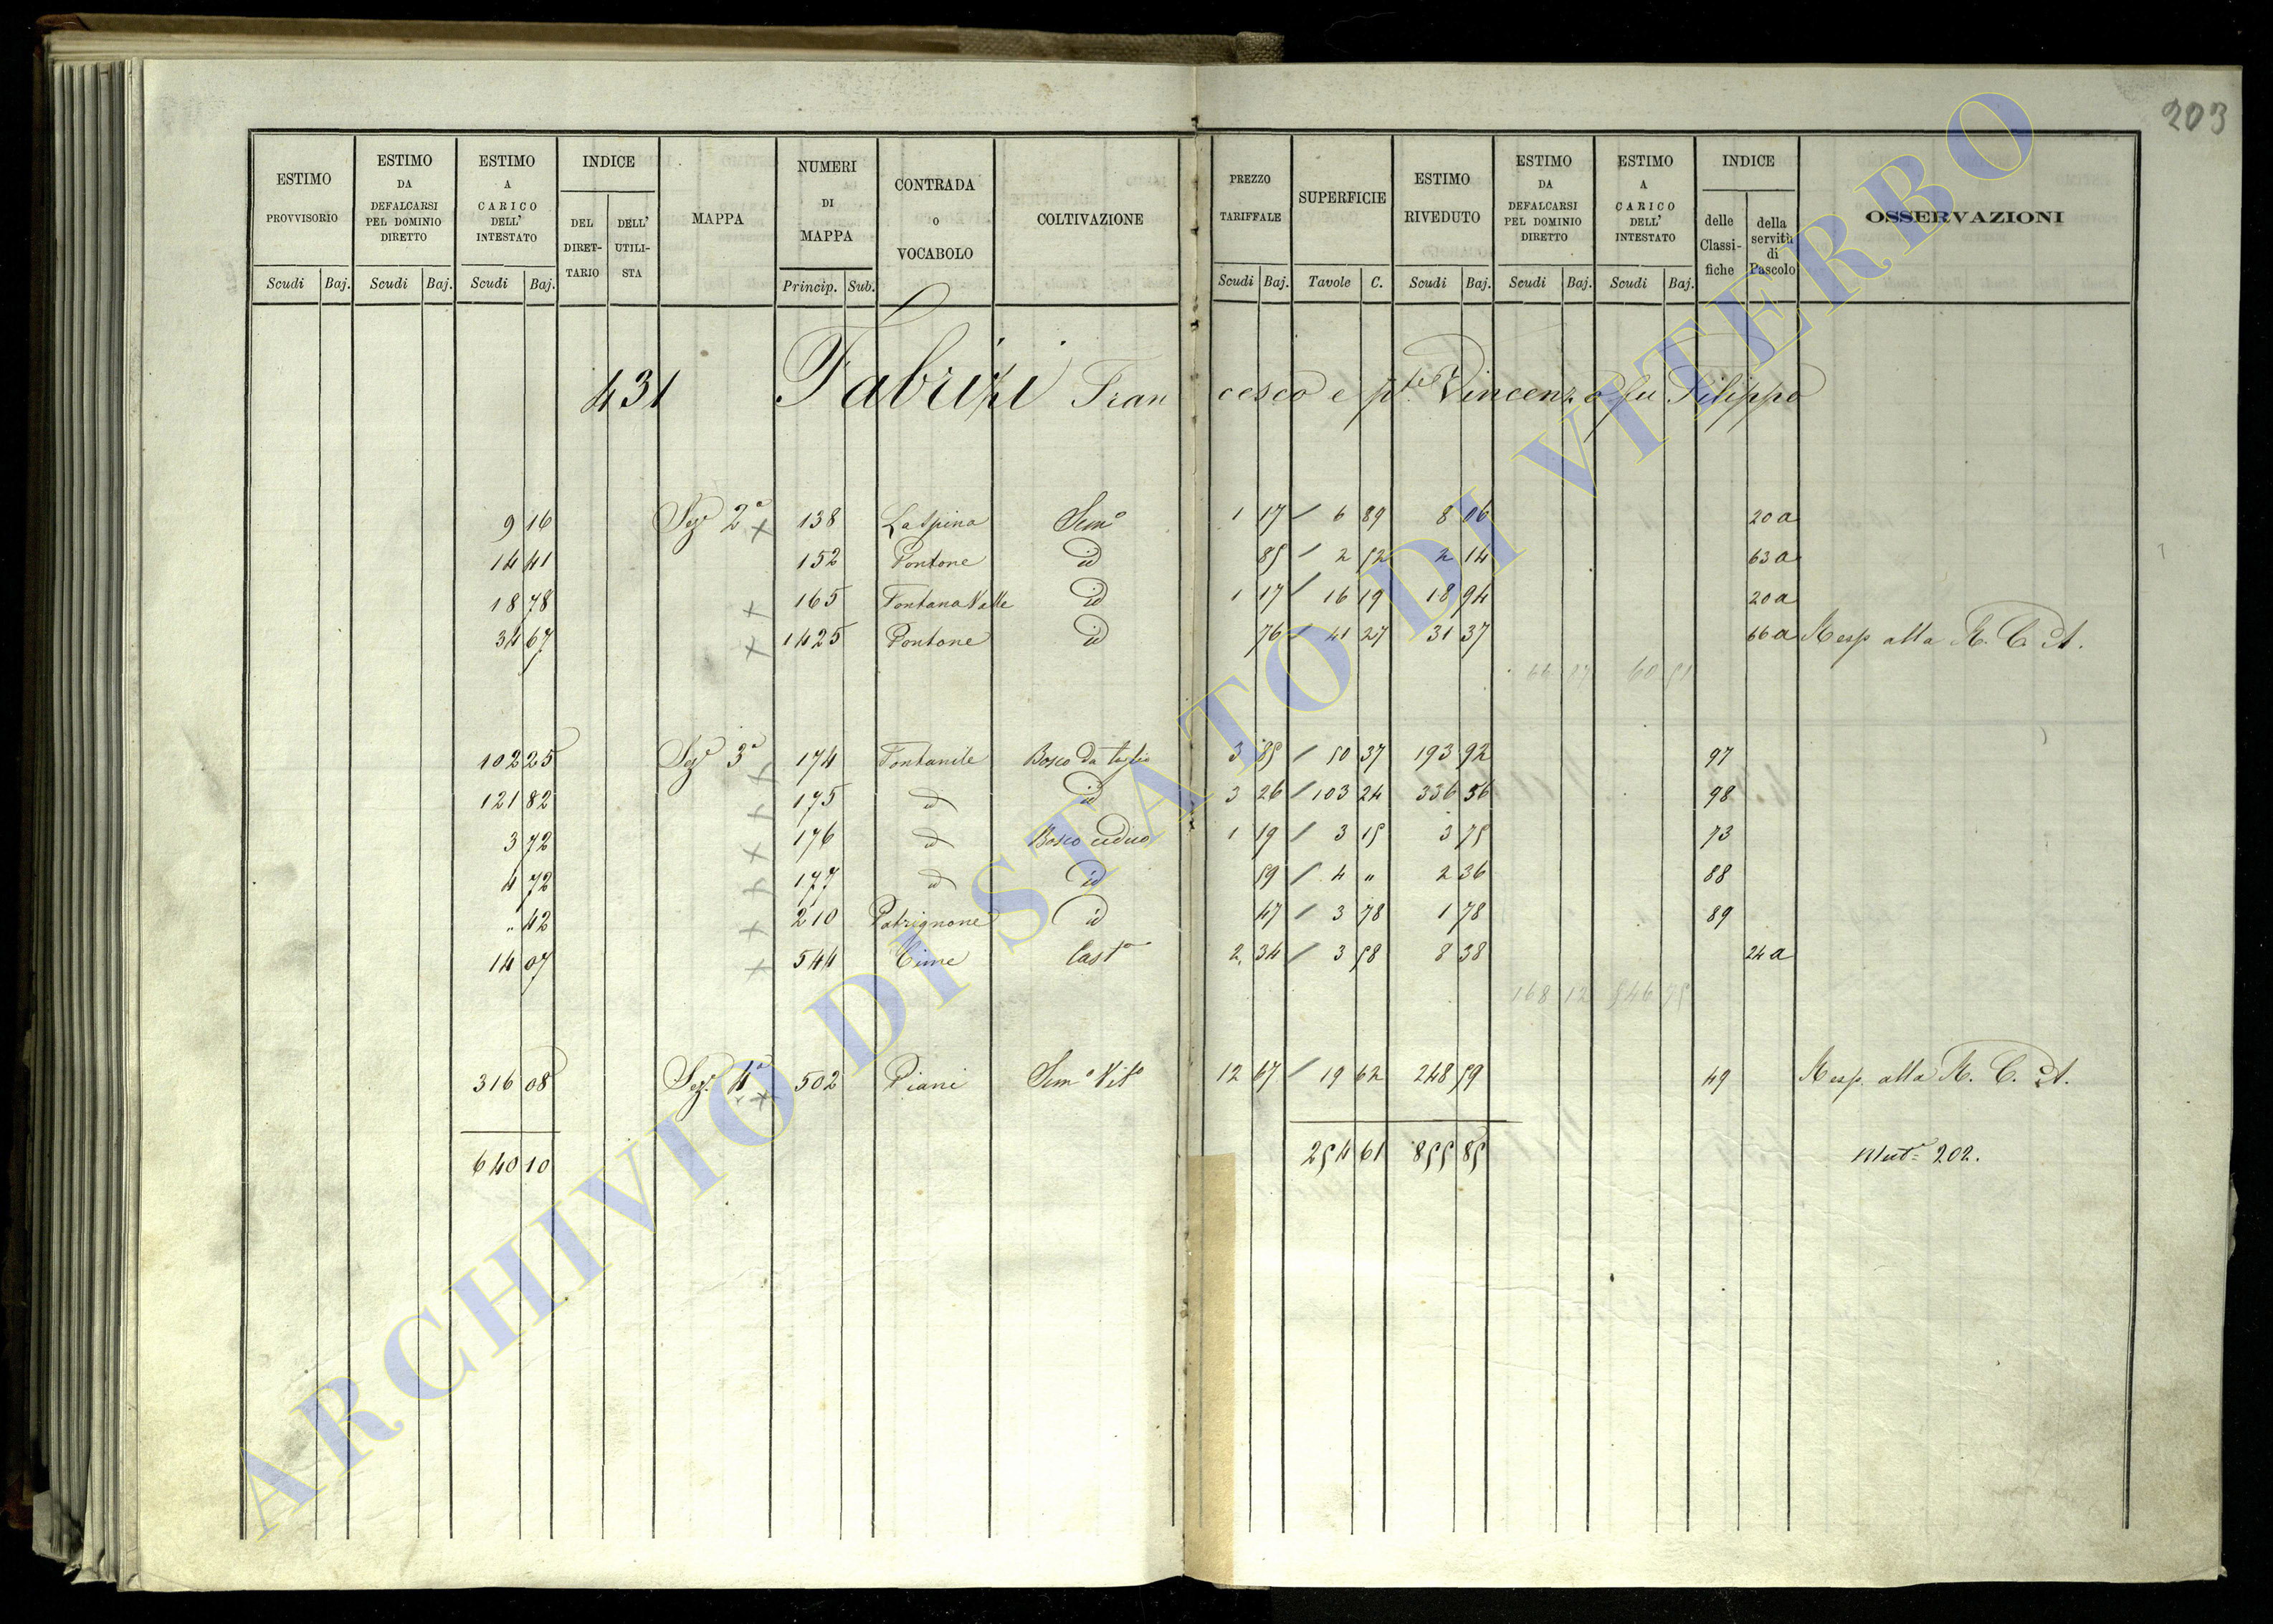 203
ESTIMO PROVVISORIO Scudi Baj. ESTIMO DA DEFALCARSI PEL DOMINIO DIRETTO Scudi Baj. ESTIMO A CARICO DELL' INTESTATO Scudi Baj. INDICE DEL DIRET-TARIO DELL' UTILI-STA MAPPA NUMERI DI MAPPA Princip. Sub. CONTRADA O VOCABOLO COLTIVAZIONE PREZZO TARIFFALE Scudi Baj. SUPERFICIE Tavole C. ESTIMO RIVEDUTO Scudi Baj. ESTIMO DA DEFALCARSI PEL DOMINIO DIRETTO Scudi Baj. ESTIMO A CARICO DELL' INTESTATO Scudi Baj. INDICE delle Classi-fiche della servitù di Pascolo OSSERVAZIONI
431 Fabrizi Francesco e Vincenzo fu Filippo
9 16 Sez.e 2a × 138 La Spina Sem.o 1 17 / 6 89 8 06 20 a
14 41 152 Pontone id 85 / 2 52 2 14 63 a
18 78 × 165 Fontana Valle id 1 17 / 16 19 18 94 20 a
34 67 × 1425 Pontone id 76 / 41 27 31 37 66 a Resp alla R. C. A.
60 51
102 25 Sez.e 3a × 174 Fontanile Bosco da taglio 3 85 / 50 37 193 92 97
121 82 × 175 id id 3 26 / 103 24 336 56 98
3 72 × 176 id Bosco ceduo 1 19 / 3 15 3 75 73
4 72 × 177 id id 59 / 4 " 2 36 88
" 42 × 210 Patrignone id 47 / 3 78 1 78 89
14 07 × 544 Cime Cast.o 2 34 / 3 58 8 38 24 a
168 12 546 75
316 08 Sez.e 4a × 502 Piani Sem.o Vit.o 12 67 / 19 62 248 59 49 Resp. alla R. C. A.
640 10 254 61 855 85 Mut.e 202.
ARCHIVIO DI STATO DI VITERBO